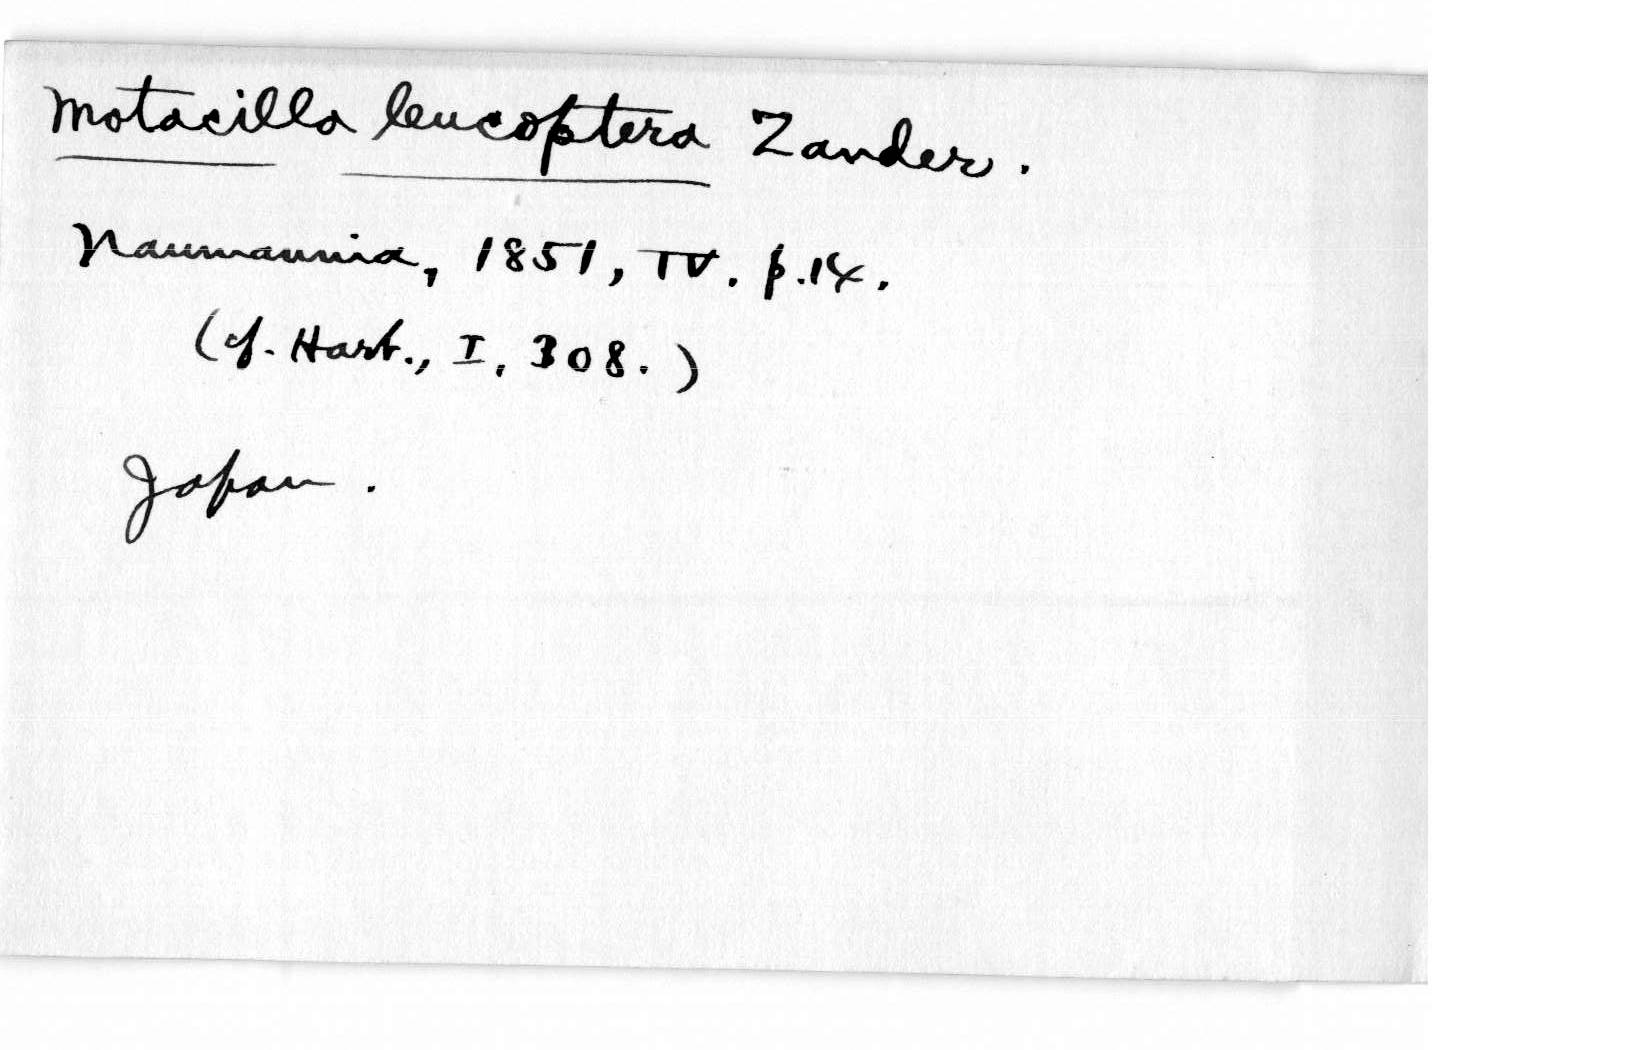 Motacilla leucoptera Zander.
Naumannia, 1851, IV. p.14.
(cf. Hart., I, 308.)
Japan.